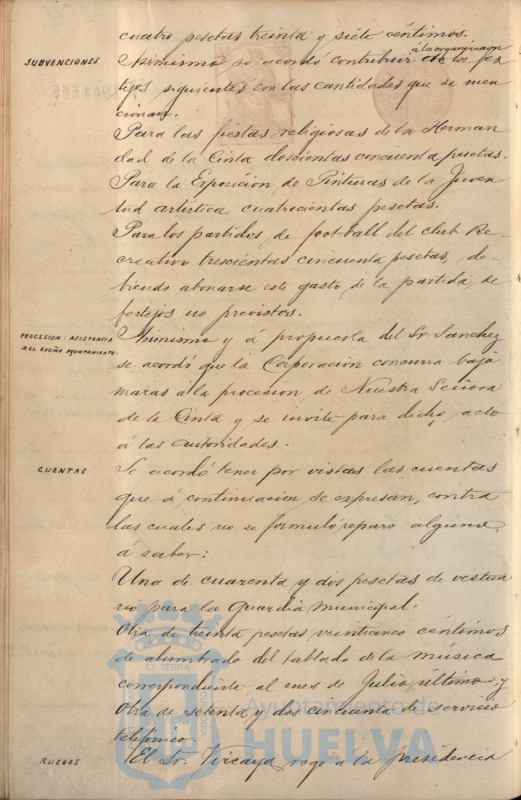 cuatro pesetas treinta y siete céntimos.
SUBVENCIONES
Asimismo se acordó contribuir a la organización de los fes
tejos siguientes con las cantidades que se men
cionan.
Para las fiestas religiosas de la Herman
dad de la Cinta doscientas cincuenta pesetas.
Para la Exposicion de Pinturas de la Juven
tud artística, cuatrocientas pesetas.
Para los partidos de foot-ball del club Re
creativo trescientas cincuenta pesetas, de-
biendo abonarse este gasto, de la partida, de
festejos no previstos.
PROCESION: ASISTENCIA
DEL EXCMO AYUNTAMIENTO.
Asimismo y á propuesta del Sr Sanchez
se acordó que la Corporación concurra bajo
mazas á la procesion, de Nuestra Señora
de la Cinta y se invite para dicho, acto
á las autoridades.
CUENTAS
Se acordó tener por vistas las cuentas
que á continuación se expresan, contra
las cuales no se formuló reparo alguno,
á saber:
Una de cuarenta y dos pesetas de vestua
rio para la Guardia Municipal.
Otra de treinta pesetas veinticinco céntimos
de alumbrado del tablado de la música
correspondiente al mes de Julio último, y
Otra de setenta y dos cincuenta de servicio
telefónico.
RUEGOS
El Sr. Vizcaya rogó á la presidencia
Ayuntamiento de
HUELVA